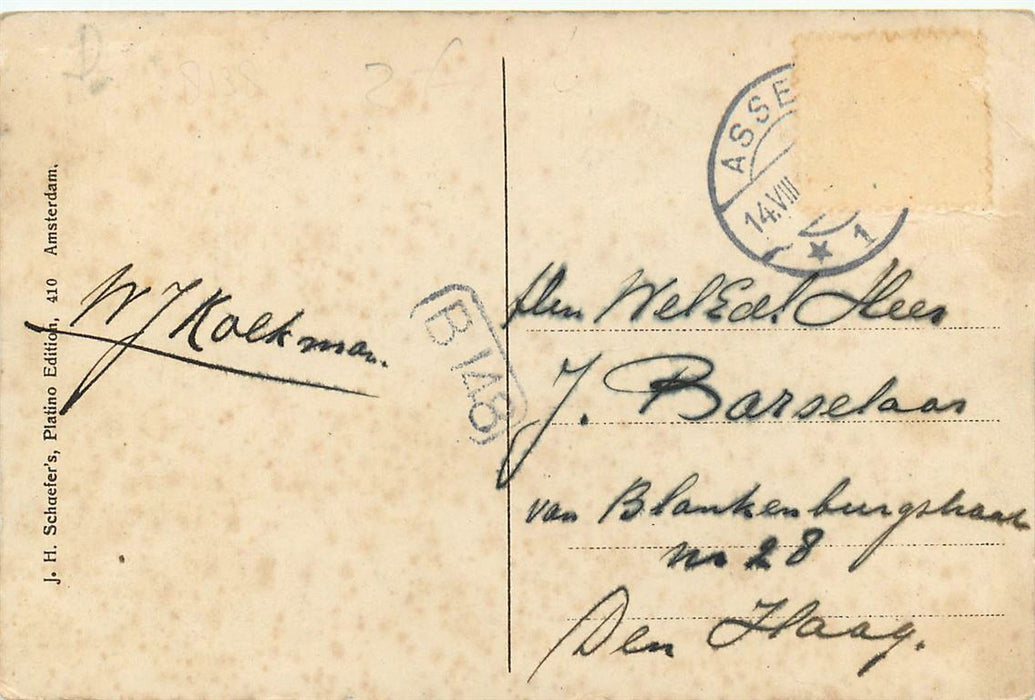 J. H. Schaefer's, Platino Edition, 410 Amsterdam.
W J Kolkman.
B 148
ASSE
14.VIII
1
Den WelEd. Heer
J. Barselaar
van Blankenburgstraat
nr 28
Den Haag.